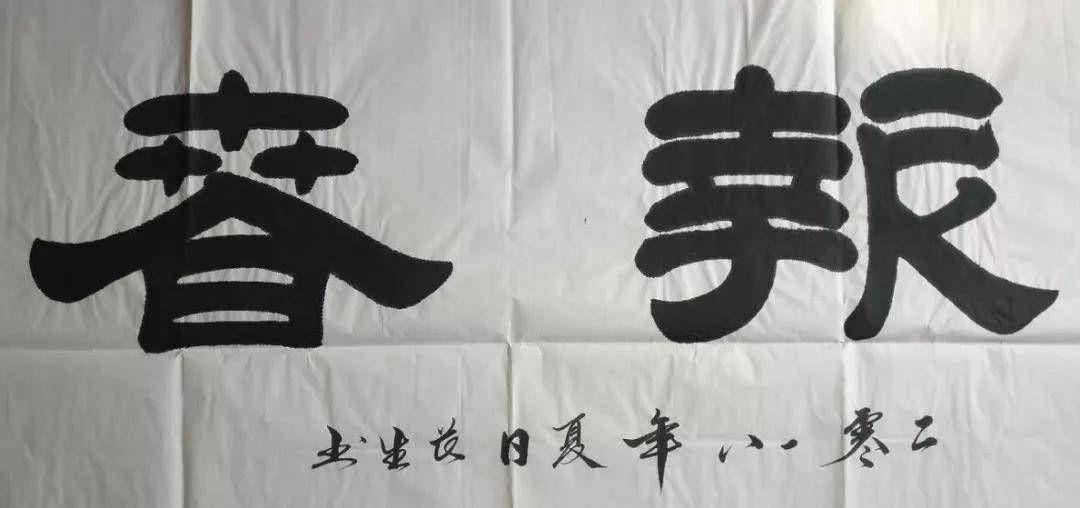 報春
二零一八年夏日茂生书